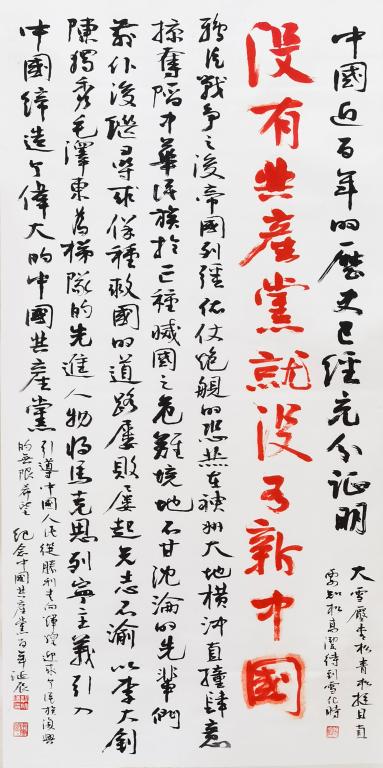 中國近百年的歷史已經充分證明
大雪壓青松青松挺且直
要知松高潔待到雪化時
没有共産黨就没有新中國
鴉片戰争之後帝國列强依仗炮艦的恐嚇在神州大地横冲直撞肆意
掠奪陷中華民族於亡種滅國之危難境地不甘沈淪的先輩們
前仆後繼尋求保種救國的道路屢敗屢起矢志不渝以李大釗
陳獨秀毛澤東為梯隊的先進人物将馬克思列寧主義引入
中國締造了偉大的中國共産黨
引導中國人民從勝利走向輝煌迎來了民族復興
的無限希望 紀念中國共産黨百年誕辰